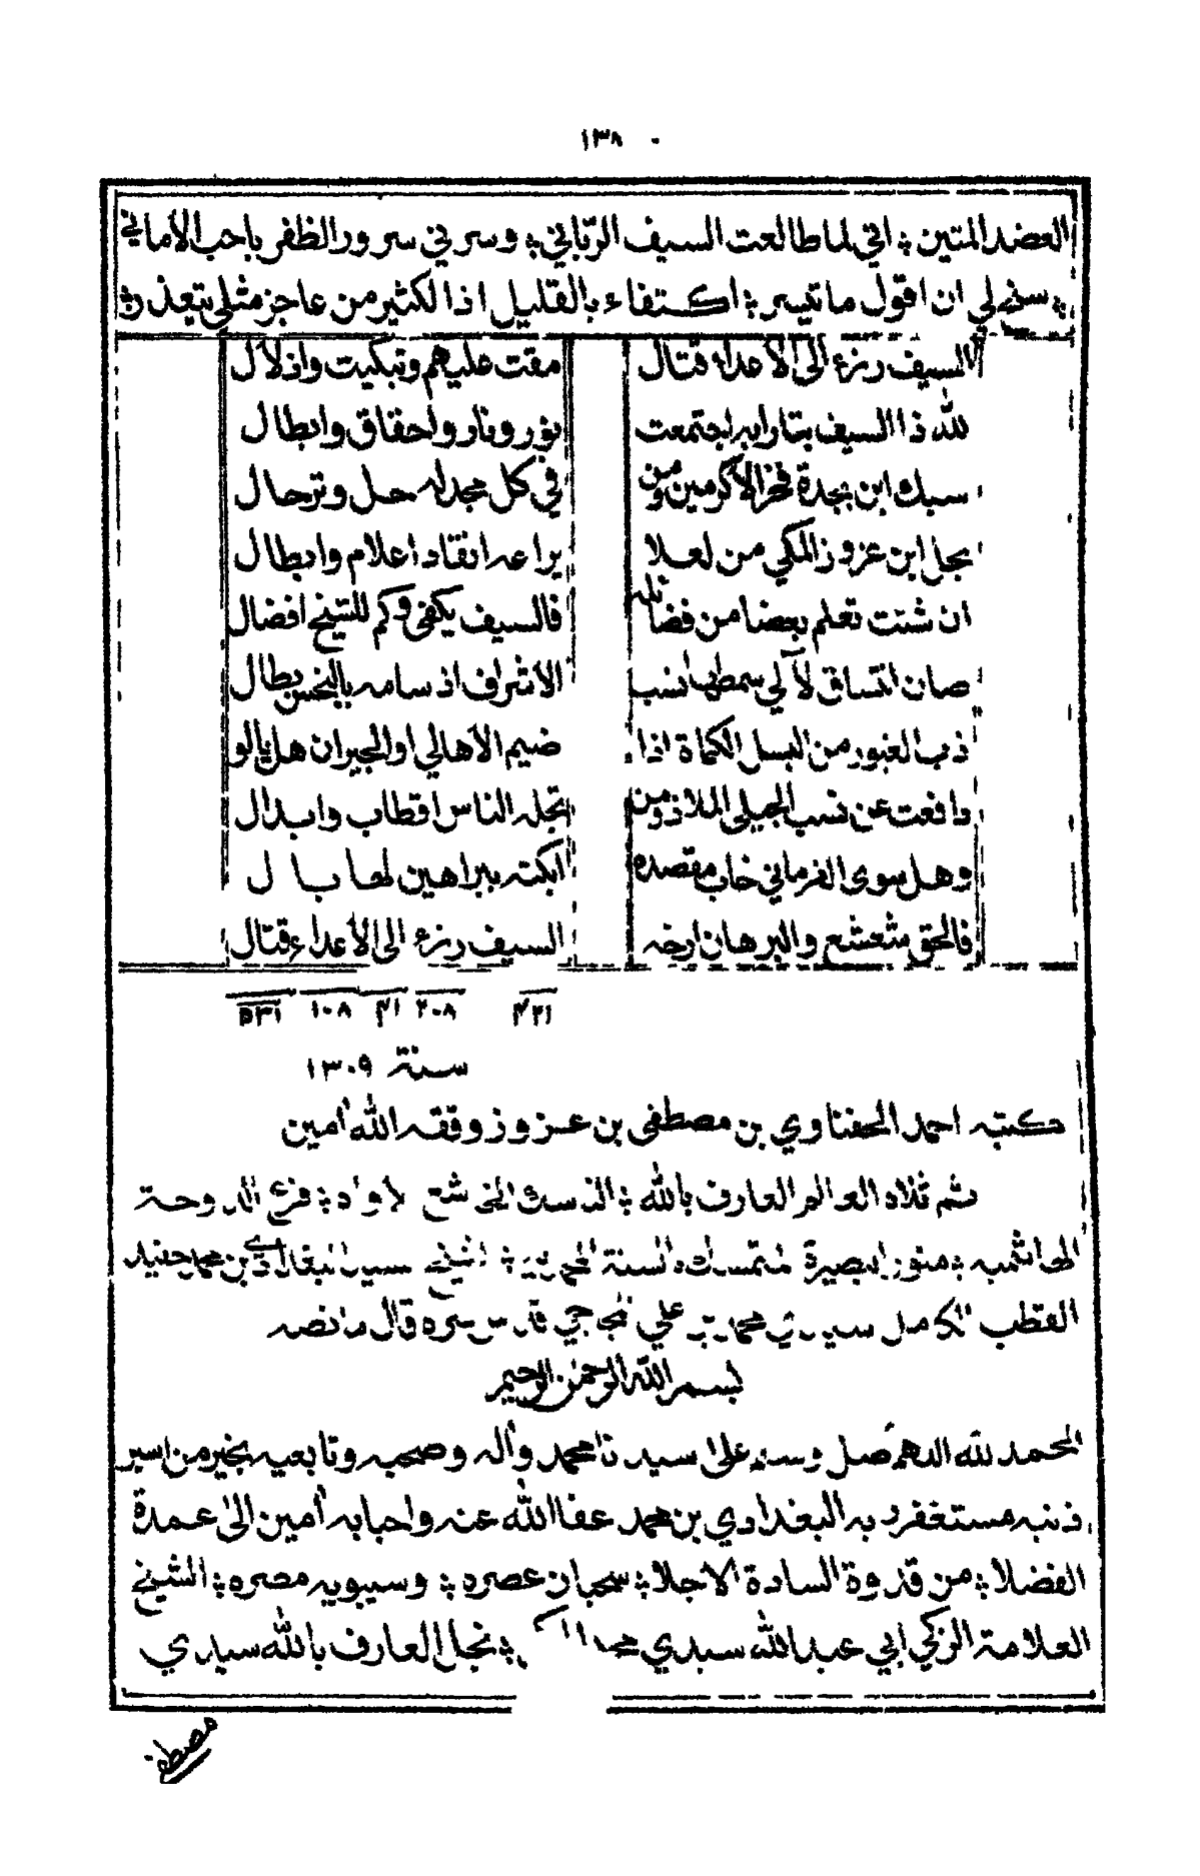 ١٣٨
العضد المتين ؛ اني لما طالعت السيف الرّباني ؛ وسرني سرور الظفر باحب الأماني
؛ سنح لي ان اقول ما تيسر ؛ اكتفاء بالقليل اذا الكثير من عاجز مثلي يتعذر ؛
السيف رزء الى الأعداء قتال مقت عليهم وتبكيت واذلال
لله ذا السيف بتارا به اجتمعت نور ونار واحقاق وابطال
سبك ابن بجدة فخر الأكرمين ومن في كل مجد له حل وترحال
نجل ابن عزوز المكي من لعلا يراعه انقاد اعلام وابطال
ان شئت تعلم بعضا من فضائله فالسيف يكفي وكم للشيخ افضال
صان اتساق لآلي سمطها نسب الاشراف اذ سامه بالبخس بطال
ذب الغيور من البسل الكماة اذا ضيم الأهالي او الجيران هل يالو
دافعت عن نسب الجيلي الملاذ ومن تجله الناس اقطاب وابدال
وهل سوى القرماني خاب مقصده ابكته ببراهين لها بال
فالحق مشعشع والبرهان ارخه السيف رزء الى الأعداء قتال
٢٠٨ ٤١ ١٠٨ ٥٣١
سنة ١٣٠٩
كتبه احمد الحفناوي بن مصطفى بن عزوز وفقه الله أمين
ثم تلاه العالم العارف بالله ؛ الناسك الخاشع الاواه ؛ فرع الدوحة
الهاشمية ؛ منور البصيرة المتمسك بالسنة المحمدية ؛ الشيخ سيدي البغدادي بن محمد حفيد
القطب الكامل سيدي محمد بن علي قدس سره قال ما نصه
بسم الله الرحمن الرحيم
الحمد لله اللهم صل وسلم على سيدنا محمد وأله وصحبه وتابعيه بخير من اسير
ذنبه مستغفر ربه البغدادي بن محمد عفا الله عنه واحبابه أمين الى عمدة
الفضلا ؛ من قدوة السادة الاجلا ؛ سحبان عصره ؛ وسيبويه مصره ؛ الشيخ
العلامة الزكي ابي عبد الله سيدي محمد المكي ؛ نجل العارف بالله سيدي
مصطفى